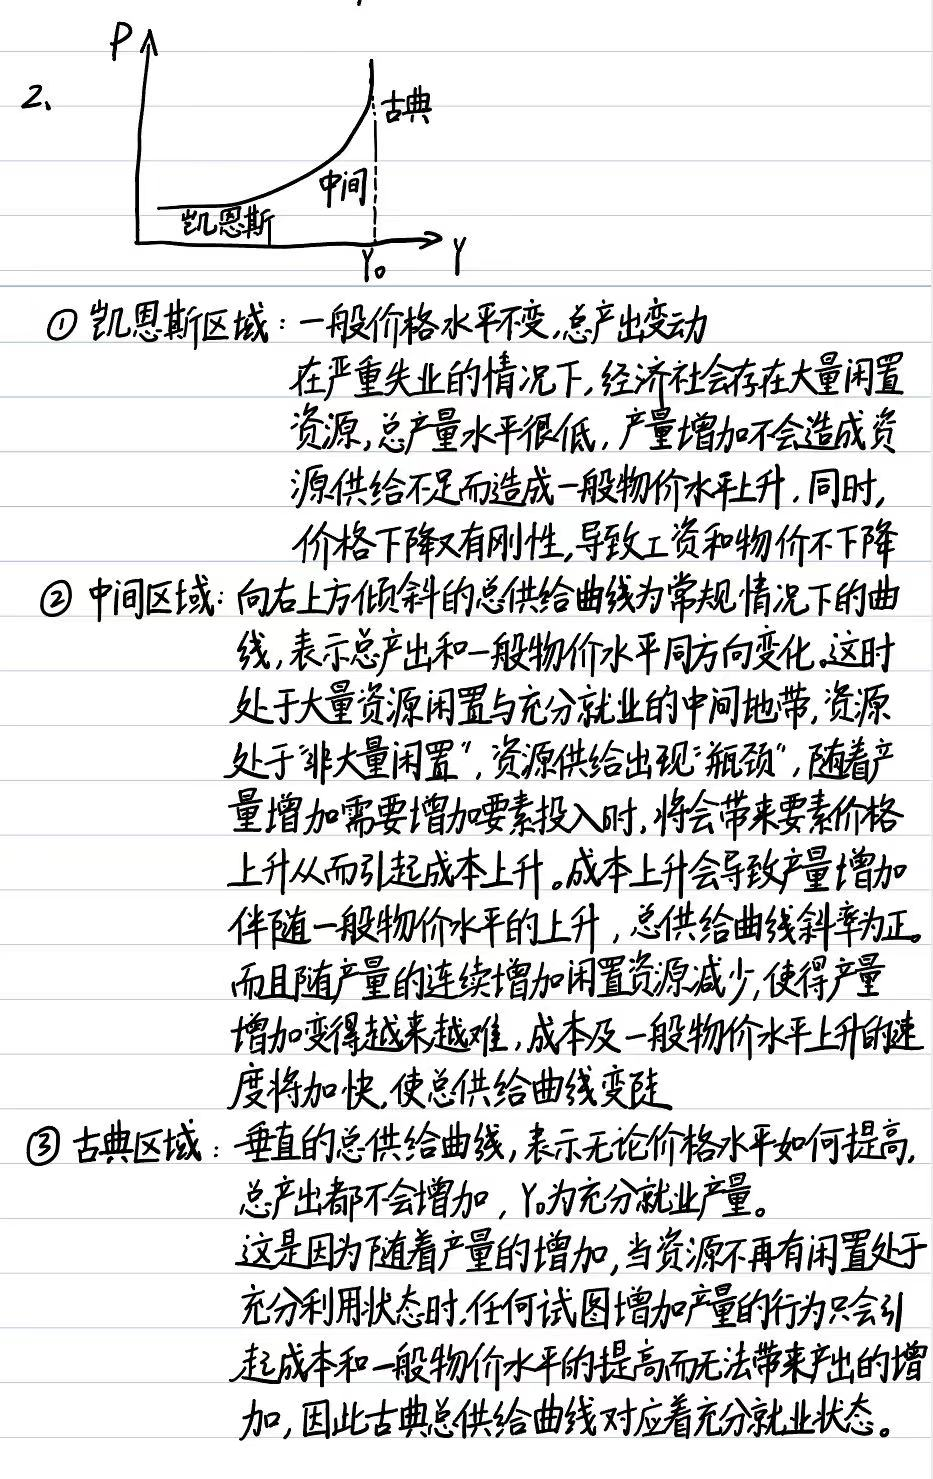 P
2、
古典
中间
凯恩斯
Y₀
Y
① 凯恩斯区域：一般价格水平不变，总产出变动
在严重失业的情况下，经济社会存在大量闲置
资源，总产量水平很低，产量增加不会造成资
源供给不足而造成一般物价水平上升．同时，
价格下降又有刚性，导致工资和物价不下降
② 中间区域：向右上方倾斜的总供给曲线为常规情况下的曲
线，表示总产出和一般物价水平同方向变化。这时
处于大量资源闲置与充分就业的中间地带，资源
处于“非大量闲置”，资源供给出现“瓶颈”，随着产
量增加需要增加要素投入时，将会带来要素价格
上升从而引起成本上升。成本上升会导致产量增加
伴随一般物价水平的上升，总供给曲线斜率为正。
而且随产量的连续增加闲置资源减少，使得产量
增加变得越来越难，成本及一般物价水平上升的速
度将加快，使总供给曲线变陡
③ 古典区域：垂直的总供给曲线，表示无论价格水平如何提高，
总产出都不会增加，Y₀为充分就业产量。
这是因为随着产量的增加，当资源不再有闲置处于
充分利用状态时，任何试图增加产量的行为只会引
起成本和一般物价水平的提高而无法带来产出的增
加，因此古典总供给曲线对应着充分就业状态。